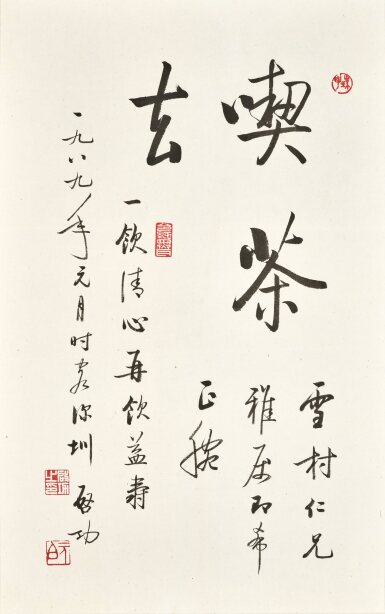 喫茶
去
雪村仁兄
雅属即希
正腕
一飲清心再飲益壽
一九八九年元月时客深圳 啓功